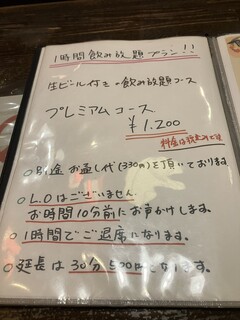 1時間飲み放題プラン!!
生ビール付きの飲み放題コース
プレミアムコース
¥1,200
料金は税込みです
○別途 お通し代(330円)を頂いております
○L.Oはございません。
お時間10分前にお声かけします。
○1時間でご退席になります。
○延長は30分500円となります。